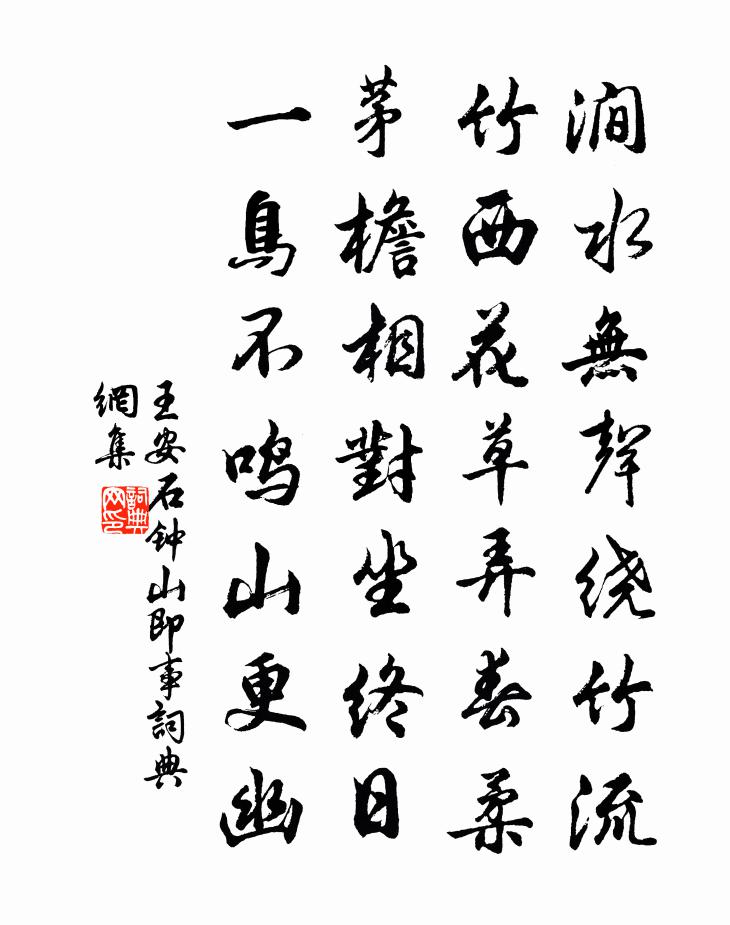 澗水無聲绕竹流
竹西花草弄春柔
茅檐相對坐終日
一鳥不鸣山更幽
王安石钟山即事詞典
網集
詞典
网印